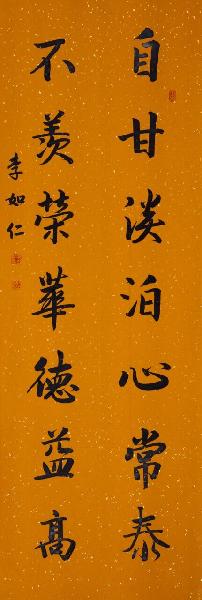 自甘淡泊心常泰
不羨榮華德益高
李如仁